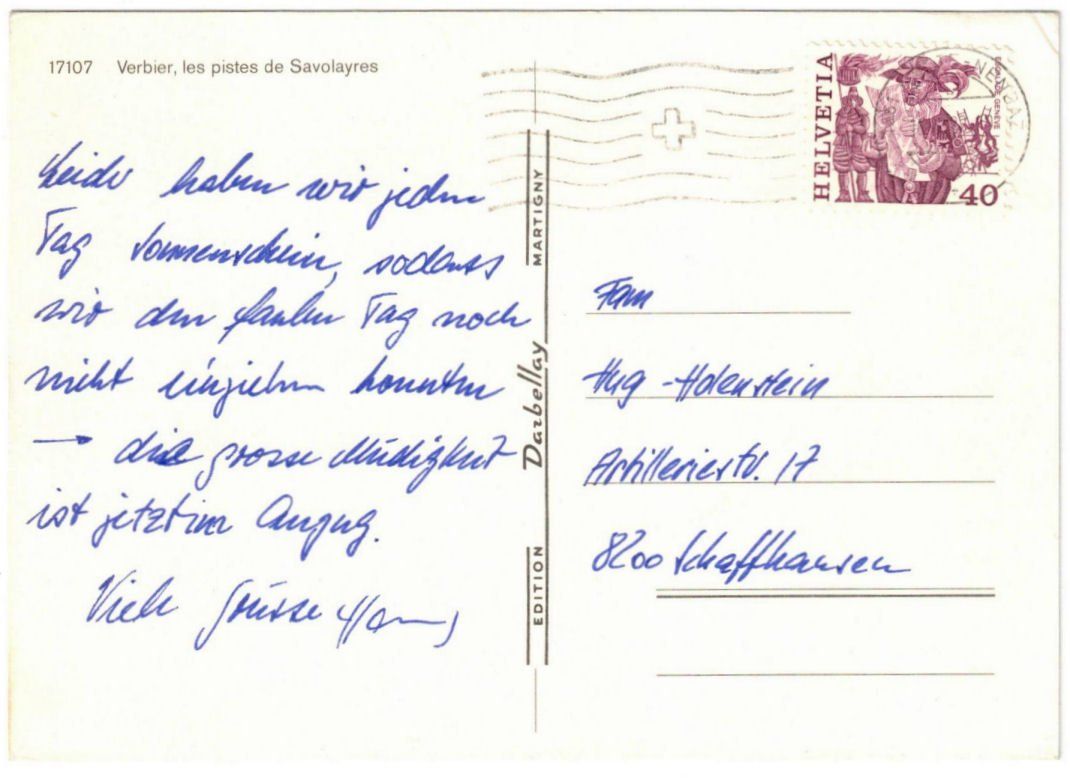 17107 Verbier, les pistes de Savolayres
Leider haben wir jeden
Tag Sonnenschein, sodass
wir den faulen Tag noch
nicht einziehen konnten
→ die grosse Müdigkeit
ist jetzt im Anzug.
Viele Grüsse
EDITION Darbellay MARTIGNY
HELVETIA
GENÈVE
40
Fam
Hug-Holenstein
Artilleriestr. 17
8200 Schaffhausen